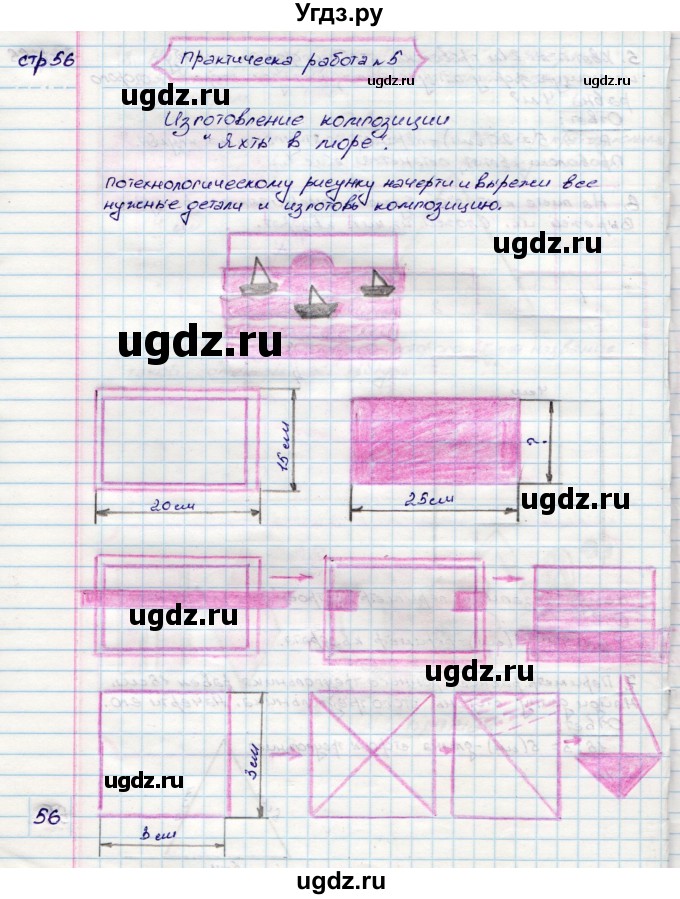 Угдз.ру
стр 56
Практическа работа №5
ugdz.ru
Изготовление композиции
"Яхты в море".
потехнологическому рисунку начерти и вырежи все
нужные детали и изготовь композицию.
ugdz.ru
ugdz.ru
15 см
?
20 см
25 см
ugdz.ru
ugdz.ru
ugdz.ru
3 см
ugdz.ru
56
3 см
ugdz.ru